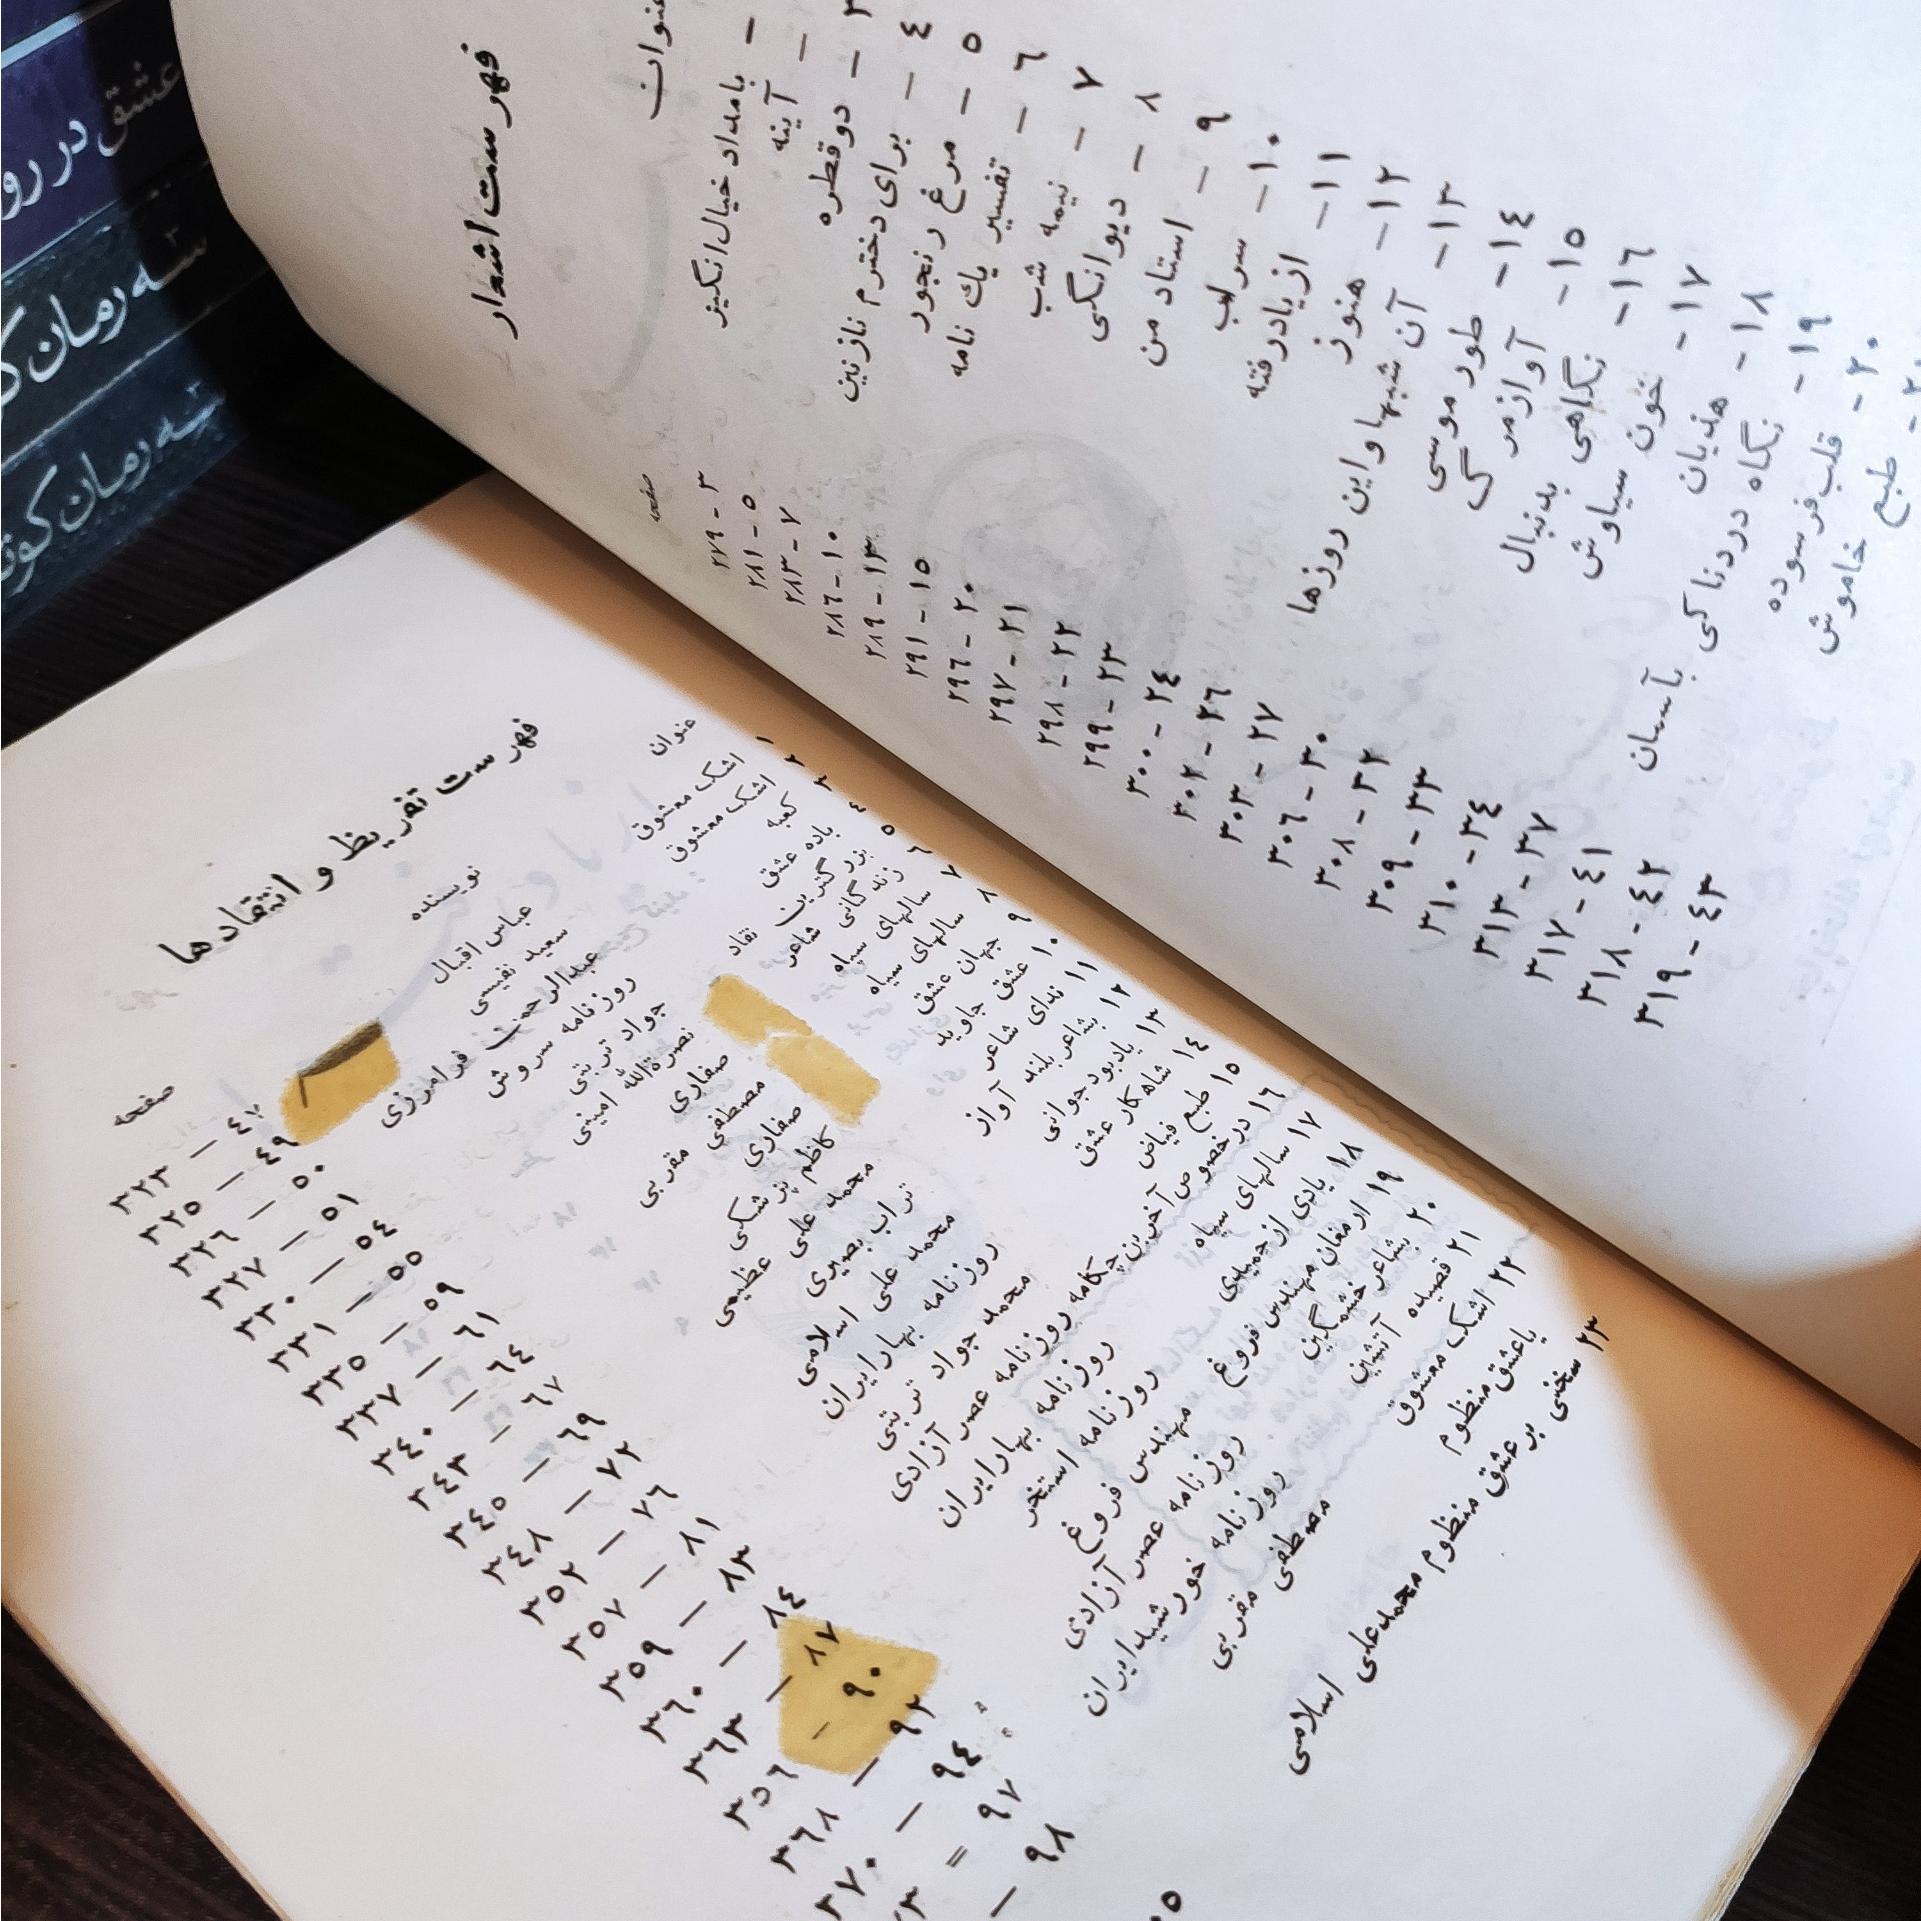 فهرست اشعار
عنوان
صفحه
- بامداد خیال‌انگیز ۳ - ۲۷۹
- آینه ۵ - ۲۸۱
۳ - دو قطره ۷ - ۲۸۳
٤ - برای دخترم نازنین ۱۰ - ۲۸٦
۵ - مرغ رنجور ۱۳ - ۲۸۹
٦ - تفسیر یك نامه ۱۵ - ۲۹۱
۷ - نیمه شب ۲۰ - ۲۹٦
۸ - دیوانگی ۲۱ - ۲۹۷
۹ - استاد من ۲۲ - ۲۹۸
۱۰ - سراب ۲۳ - ۲۹۹
۱۱ - از یاد رفته ۲٤ - ۳۰۰
۱۲ - هنوز ۲٦ - ۳۰۲
۱۳ - آن شبها و این روزها ۲۷ - ۳۰۳
۱٤ - طور موسی ۳۰ - ۳۰٦
۱۵ - آواز مرگ ۳۲ - ۳۰۸
۱٦ - نگاهی بدنبال ۳۳ - ۳۰۹
۱۷ - خون سیاوش ۳٤ - ۳۱۰
۱۸ - هذیان ۳۷ - ۳۱۳
۱۹ - نگاه دردناکی بآسمان ٤۱ - ۳۱۷
۲۰ - قلب فرسوده ٤۲ - ۳۱۸
طبع خاموش ٤۳ - ۳۱۹
فهرست تقریظ و انتقادها
عنوان نویسنده صفحه
۱ اشک معشوق عباس اقبال ٤۷ — ۳۲۳
۲ اشک معشوق سعید نفیسی ٤۹ — ۳۲۵
۳ کعبه عبدالرحمن فرامرزی ۵۰ — ۳۲٦
٤ باده عشق روزنامه سروش ۵۱ — ۳۲۷
۵ بزرگترین نقاد جواد تربتی ۵٤ — ۳۳۰
٦ زندگانی شاعر نصرةالله امینی ۵۵ — ۳۳۱
۷ سالهای سیاه صفاری ۵۹ — ۳۳۵
۸ سالهای سیاه مصطفی مقربی ٦۱ — ۳۳۷
۹ جهان عشق صفاری ٦٤ — ۳٤۰
۱۰ عشق جاوید کاظم پزشکی ٦۷ - ۳٤۳
۱۱ ندای شاعر محمد علی عظیمی ٦۹ — ۳٤۵
۱۲ بشاعر بلند آواز تراب بصیری ۷۲ — ۳٤۸
۱۳ یادبود جوانی محمد علی اسلامی ۷٦ — ۳۵۲
۱٤ شاهکار عشق روزنامه بهار ایران ۸۱ — ۳۵۷
۱۵ طبع فیاض محمد جواد تربتی ۸۳ — ۳۵۹
۱٦ در خصوص آخرین چکامه روزنامه عصر آزادی ۸٤ — ۳٦۰
۱۷ سالهای سیاه روزنامه بهار ایران ۸۷ — ۳٦۳
۱۸ یادی از حمیدی روزنامه استخر ۹۰ — ۳۵٦
۱۹ ارمغان مهندس فروغ مهندس فروغ ۹۲ — ۳٦۸
۲۰ بشاعر خشمگین روزنامه عصر آزادی ۹٤ — ۳۷۰
۲۱ قصیده آتشین روزنامه خورشید ایران ۹۷ =
۲۲ اشک معشوق مصطفی مقربی ۹۸ —
یا عشق منظوم
۲۳ سخنی بر عشق منظوم محمدعلی اسلامی
عشق در رو
سه رمان
سه رمان کوتا